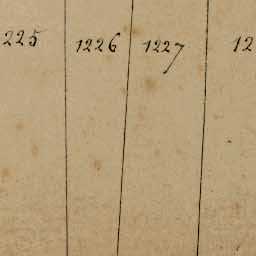 225 1226 1227 12